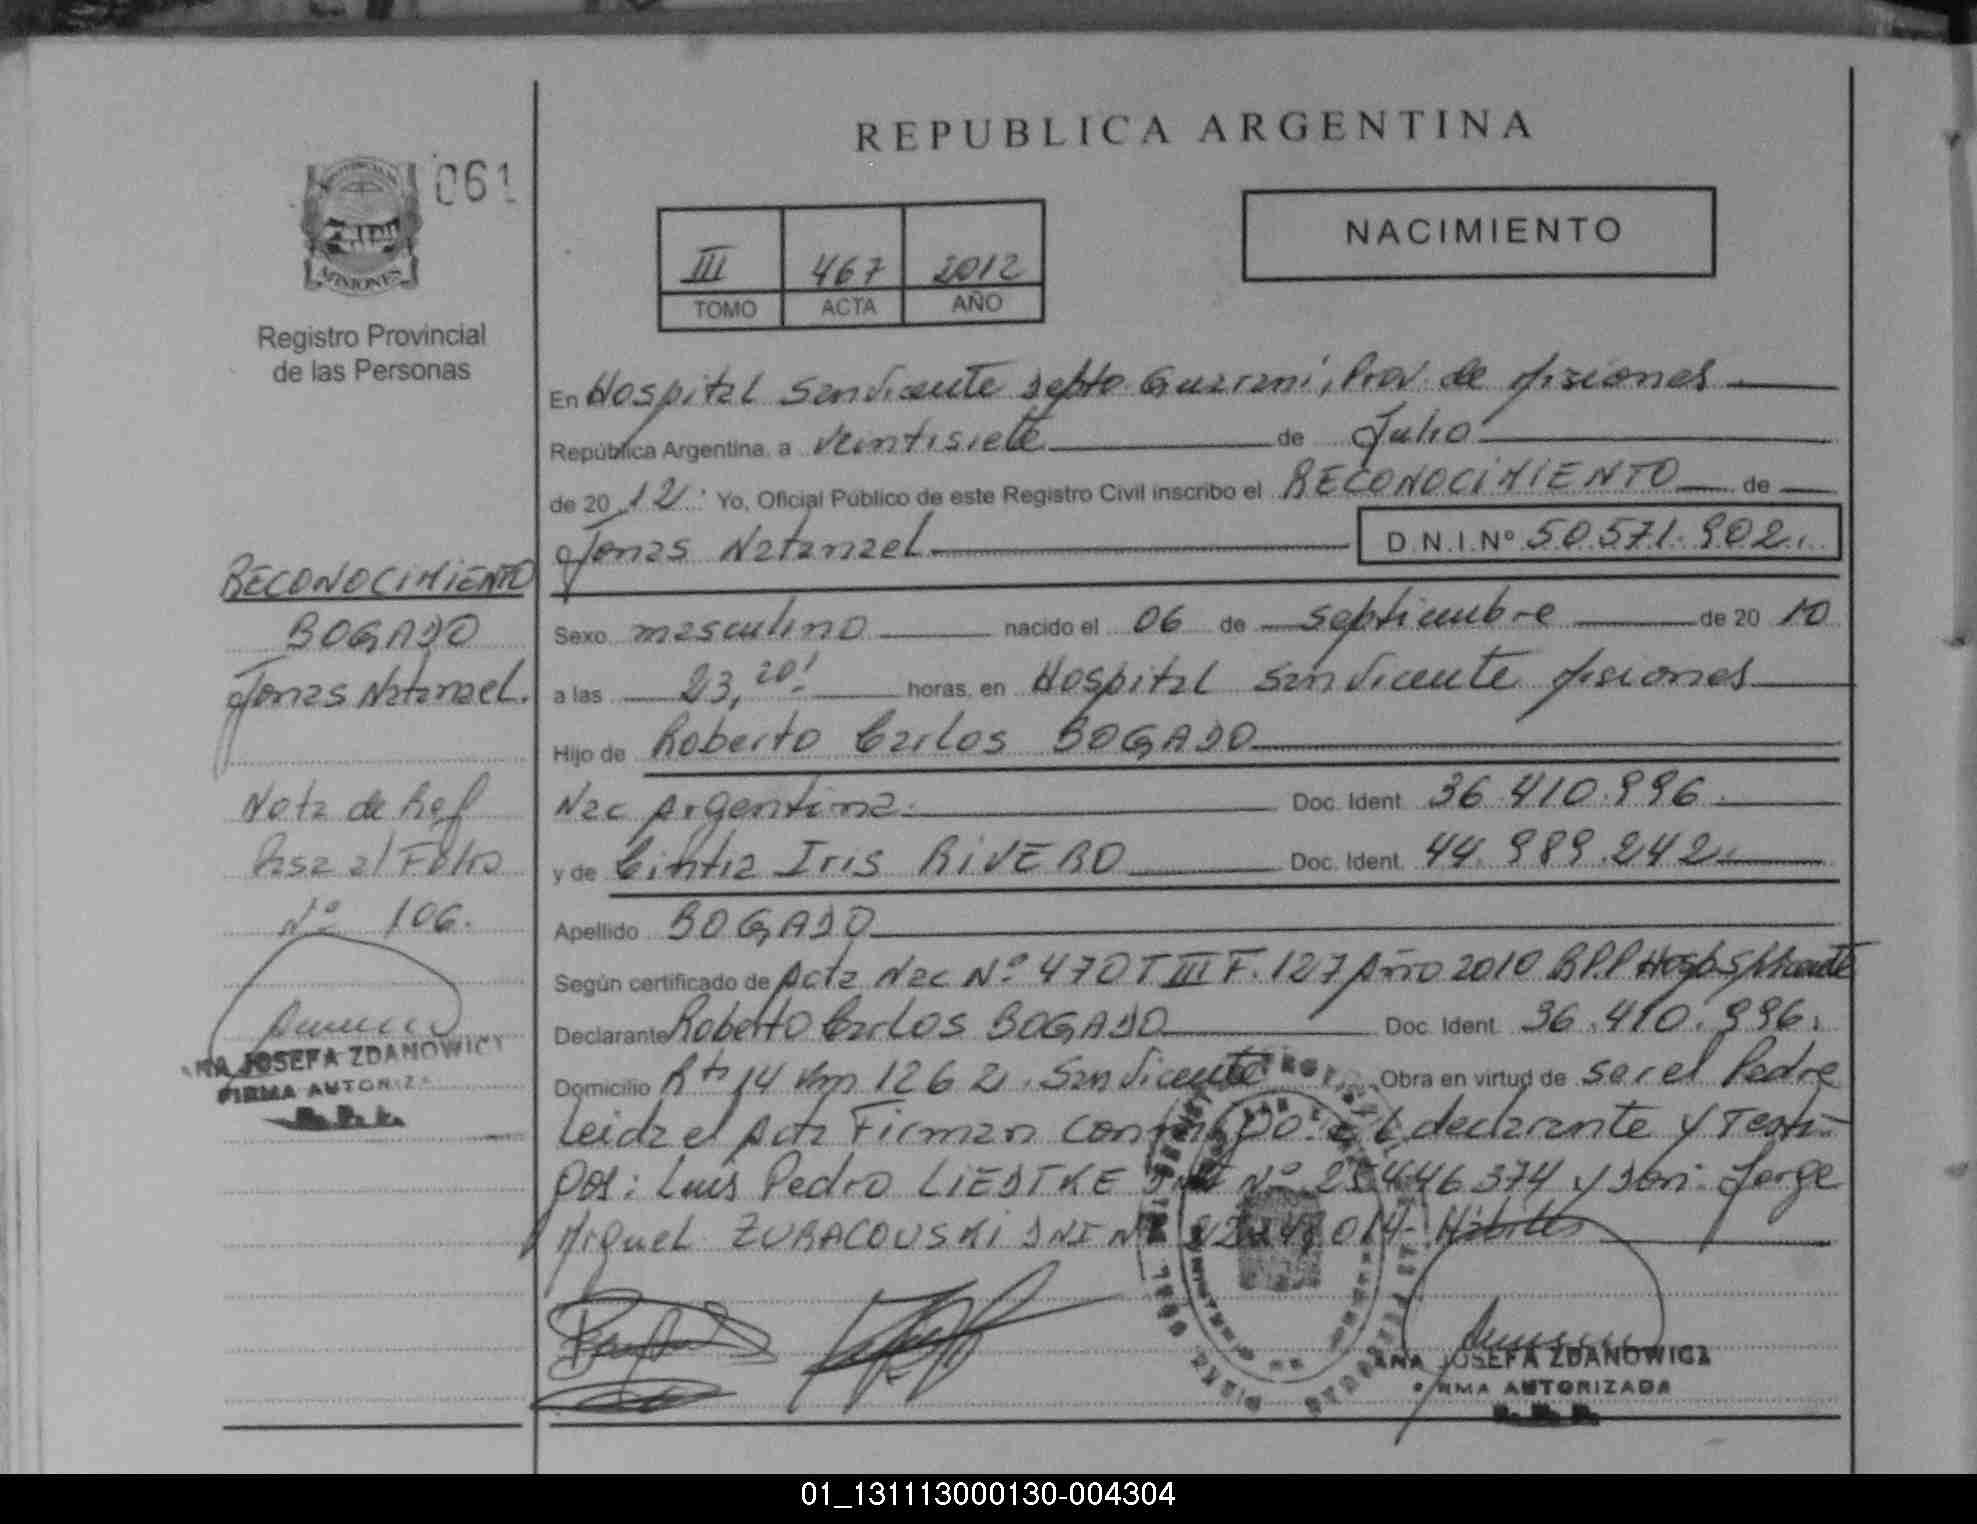 REPUBLICA ARGENTINA
061
NACIMIENTO
III 467 2012
TOMO ACTA AÑO
MISIONES
Registro Provincial
de las Personas
En Hospital San Vicente Depto Guarani, Prov. de Misiones
República Argentina, a veintisiete de Julio
de 20 12. Yo, Oficial Público de este Registro Civil inscribo el RECONOCIMIENTO de
Jonas Natanael D.N.I.Nº 50.571.902.
Sexo masculino nacido el 06 de septiembre de 20 10
a las 23,20' horas, en Hospital San Vicente Misiones
Hijo de Roberto Carlos BOGADO
Nac Argentina. Doc. Ident. 36.410.996.
y de Cintia Iris RIVERO Doc. Ident. 44.989.242
Apellido BOGADO
Según certificado de Acta Nac Nº 470 T III F. 127 Año 2010 R.P.P Hosp. S. Vicente
Declarante Roberto Carlos BOGADO Doc. Ident. 36.410.996.
Domicilio Rta 14 Km 1262. San Vicente Obra en virtud de ser el Padre
Leida el Acta Firman conmigo: el declarante y Testi-
gos: Luis Pedro LIEDTKE DNI Nº 25446374 y Don: Jorge
Miguel ZURACOUSKI DNI Nº Hábiles
ANA JOSEFA ZDANOWICZ
FIRMA AUTORIZADA
R.P.P.
RECONOCIMIENTO
BOGADO
Jonas Natanael.
Nota de Ref
Pasa al Folio
Nº 106.
ANA JOSEFA ZDANOWICZ
FIRMA AUTORIZA
R.P.P.
01_131113000130-004304